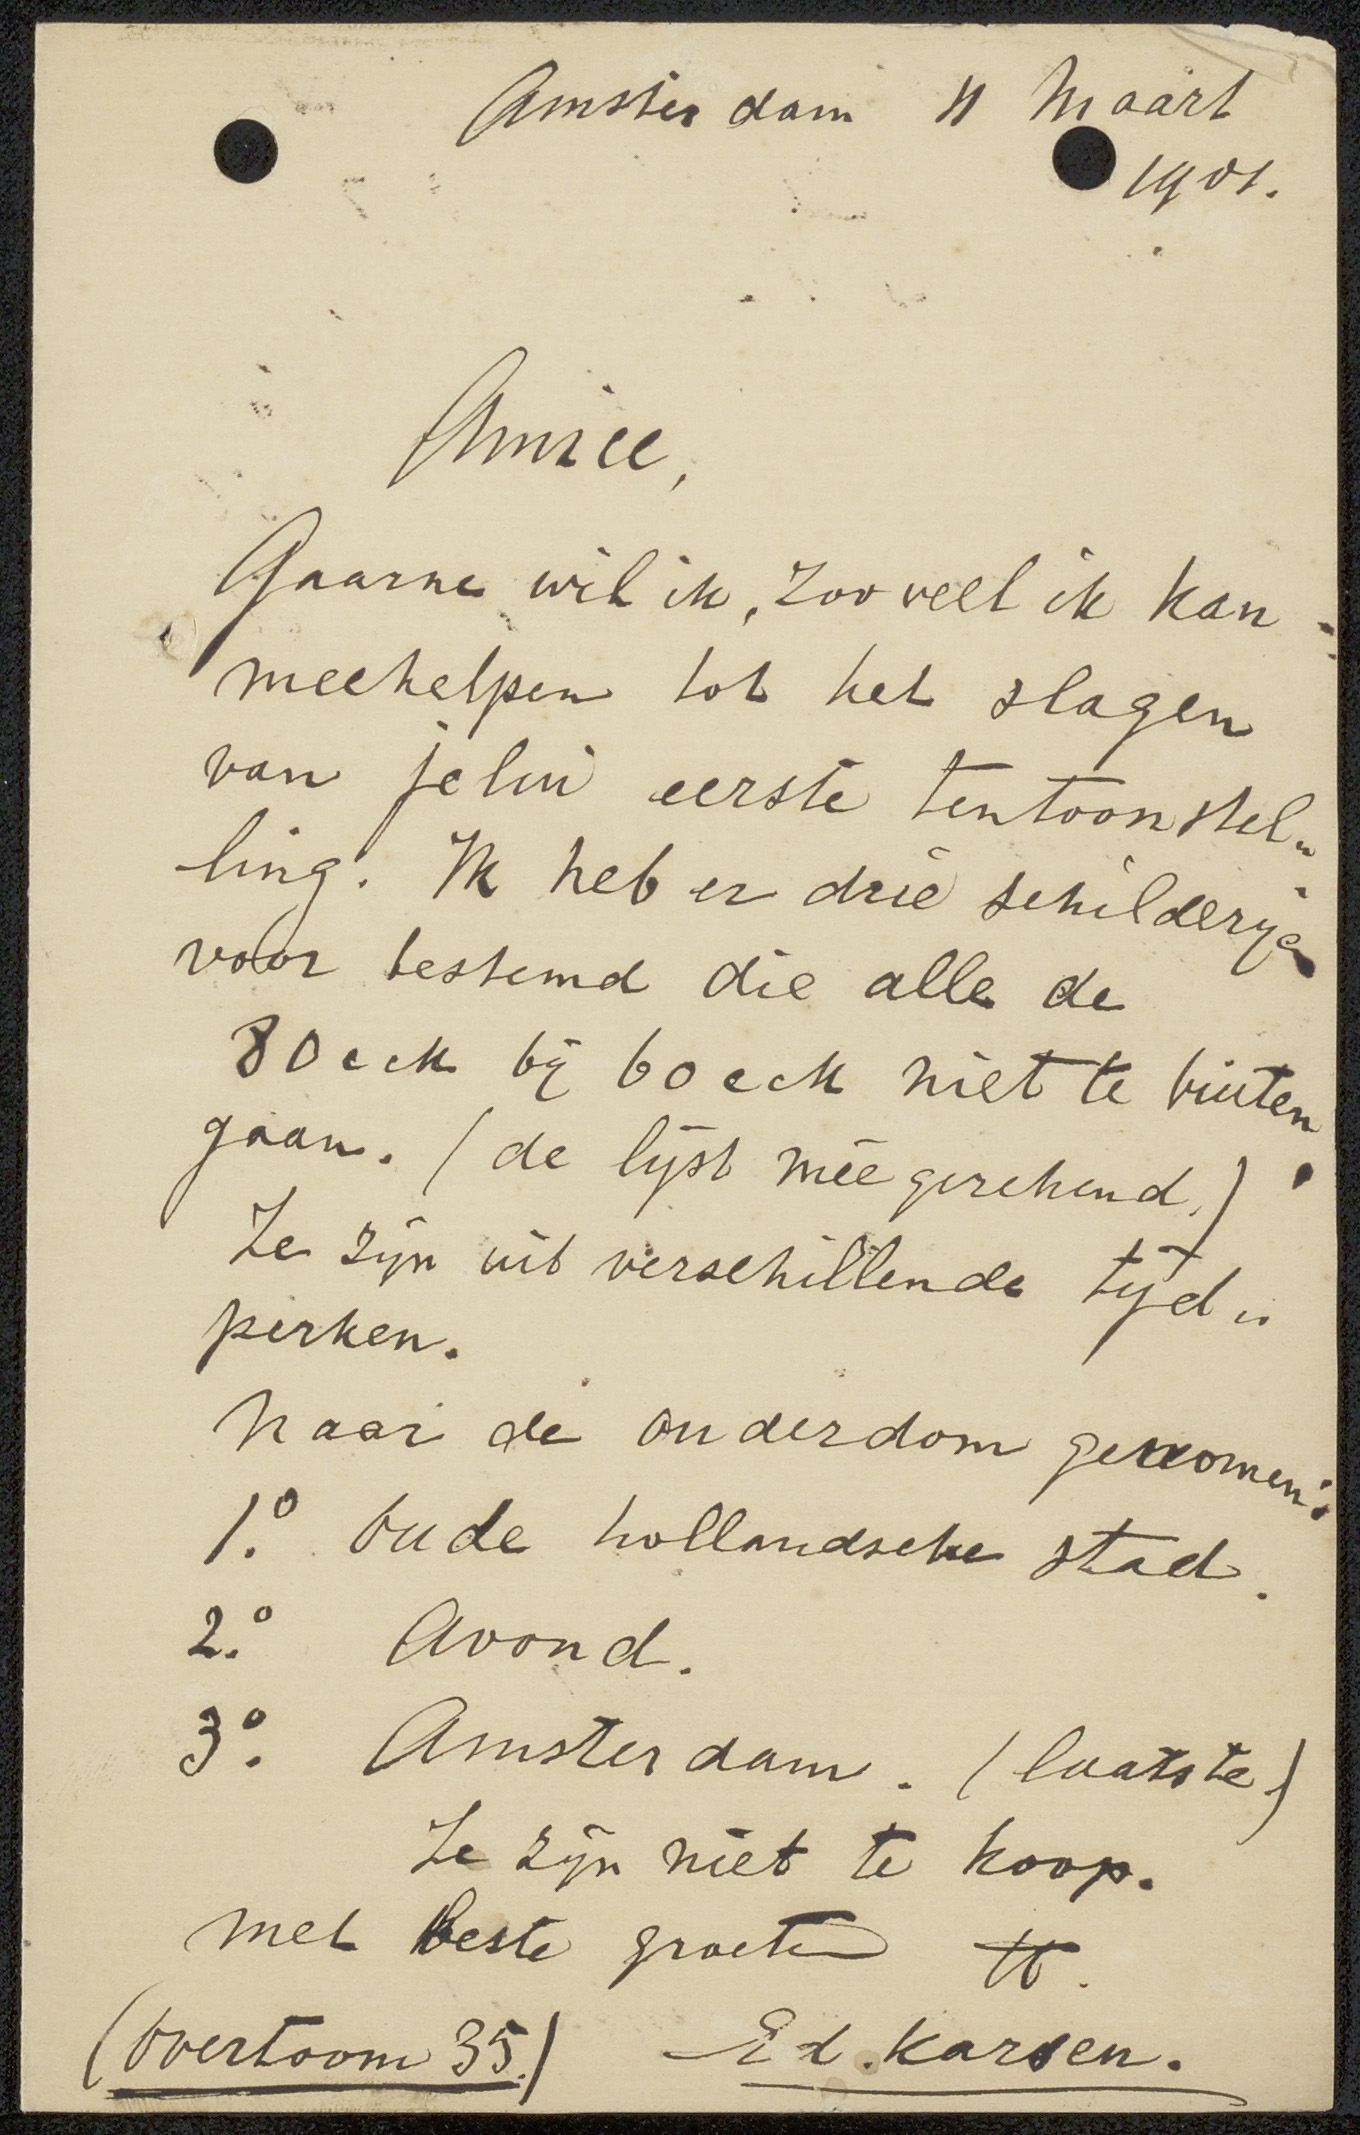 Amsterdam 11 Maart
1901.
Amice,
Gaarne wil ik, zooveel ik kan
meehelpen tot het slagen
van jelui eerste tentoonstel„
ling. Ik heb er drie schilderijen
voor bestemd die alle de
80 cM bij 60 cM niet te buiten
gaan. (de lijst mee gerekend.)
Ze zijn uit verschillende tijd„
perken.
Naar de ouderdom genomen:
1.º Oude hollandsche stad.
2.º Avond.
3.º Amsterdam. (laatste)
Ze zijn niet te koop.
Met beste groeten tt.
(Overtoom 35.) Ed. Karsen.